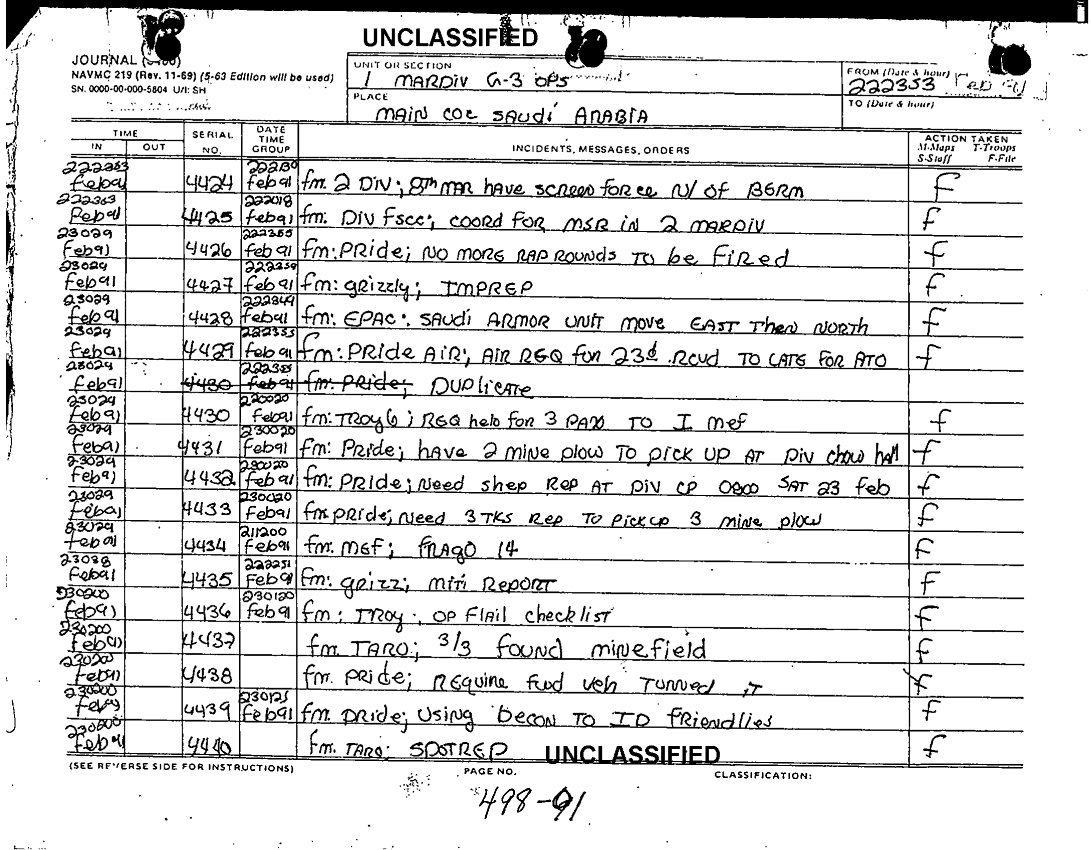 UNCLASSIFIED
JOURNAL
NAVMC 219 (Rev. 11-69) (5-63 Edition will be used)
SN. 0000-00-000-5804 U/I: SH
UNIT OR SECTION
1 MARDIV G-3 OPS
PLACE
MAIN COC SAUDI ARABIA
FROM (Date & hour)
222353 Feb 91
TO (Date & hour)
TIME
IN OUT
SERIAL NO.
DATE TIME GROUP
INCIDENTS, MESSAGES, ORDERS
ACTION TAKEN
M-Maps T-Troops
S-Staff F-File
222353 Feb91 4424 Feb91 fm 2 DIV; 8TH MAR HAVE SCREEN FORCE N/ OF BERM F
222353 Feb91 4425 222018 Feb91 fm. DIV FSCC; COORD FOR MSR IN 2 MARDIV F
23029 Feb91 4426 222355 Feb91 fm: PRIDE; NO MORE RAP ROUNDS TO be FIRED F
23029 Feb91 4427 222359 Feb91 fm: grizzly; IMPREP F
23029 Feb91 4428 222349 Feb91 fm: EPAC: SAUDI ARMOR UNIT MOVE EAST THEN NORTH F
23029 Feb91 4429 222355 Feb91 fm: PRIDE AIR; AIR REQ fur 23d RCVD TO LATE FOR ATO F
23029 Feb91 4430 222355 Feb91 fm: PRide; DUPLICATE
23029 Feb91 4430 Feb91 fm: TROY 6; REQ help for 3 PAX TO I MEF F
23029 Feb91 4431 230020 Feb91 fm: Pride; HAVE 2 mine plow TO PICK UP AT DIV chow hall F
23029 Feb91 4432 230020 Feb91 fm: PRIDE; Need shep Rep AT DIV CP 0800 SAT 23 Feb F
23029 Feb91 4433 230020 Feb91 fm PRIDE; Need 3 TKS REP TO PICKUP 3 mine plow F
23029 Feb91 4434 211200 Feb91 fm. MEF; FRAGO 14 F
23038 Feb91 4435 222251 Feb91 fm: grizz; miji REPORT F
230200 Feb91 4436 230120 Feb91 fm: TROY. OP Flail checklist F
230200 Feb91 4437 fm. TARO; 3/3 found minefield F
230200 Feb91 4438 fm. PRIDE; REquine fwd veh TURNED IT F
230200 Feb91 4439 230125 Feb91 fm. PRIDE; USING DECON TO ID FRIENDLIES F
230200 Feb91 4440 fm. TARO; SPOTREP F
UNCLASSIFIED
(SEE REVERSE SIDE FOR INSTRUCTIONS)
PAGE NO.
CLASSIFICATION:
498-91